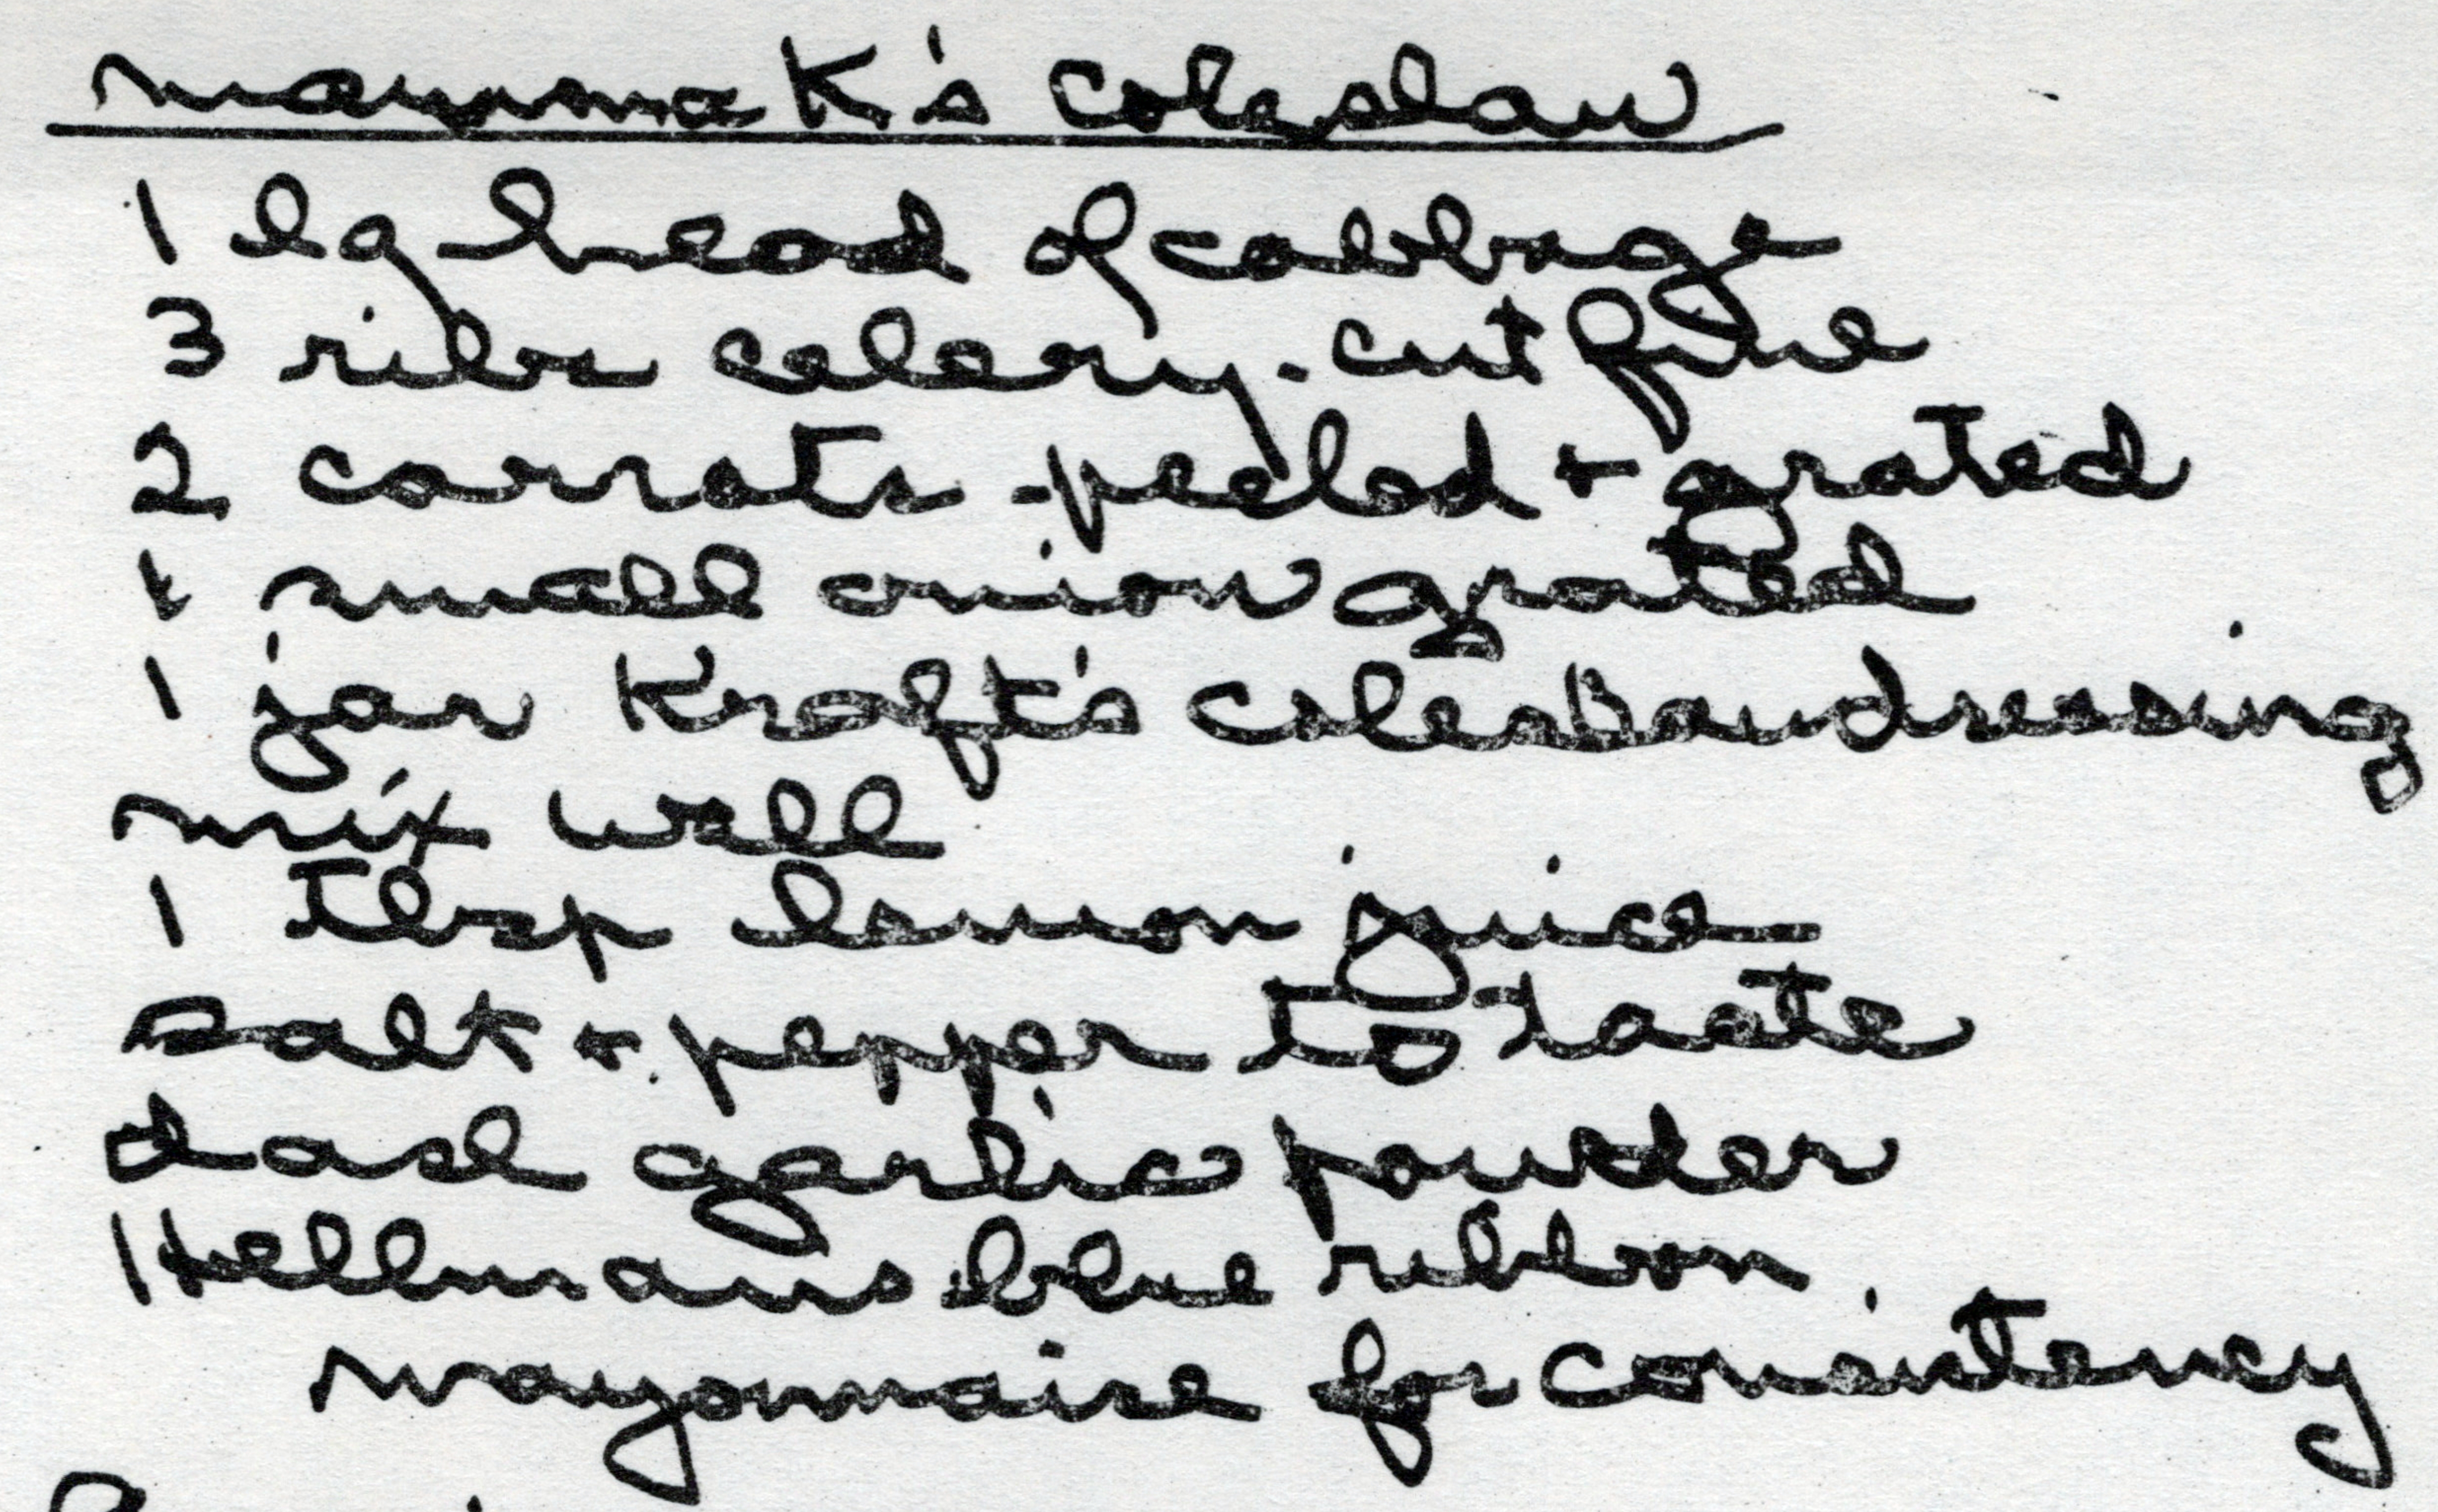 mamma K's Coleslaw
1 lg head of cabbage
3 ribs celery - cut fine
2 carrots - peeled + grated
1 small onion grated
1 jar Kraft's coleslaw dressing
mix well
1 Tbsp lemon juice
salt + pepper to taste
dash garlic powder
Hellmans blue ribbon
mayonnaise for consistency